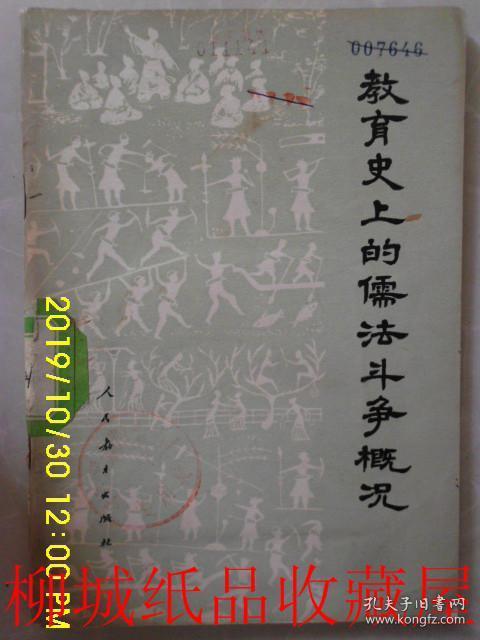 007646
教育史上的儒法斗争概况
人民教育出版社
2019/10/30 12:00 PM
柳城纸品收藏屋
孔夫子旧书网
kongfz.com